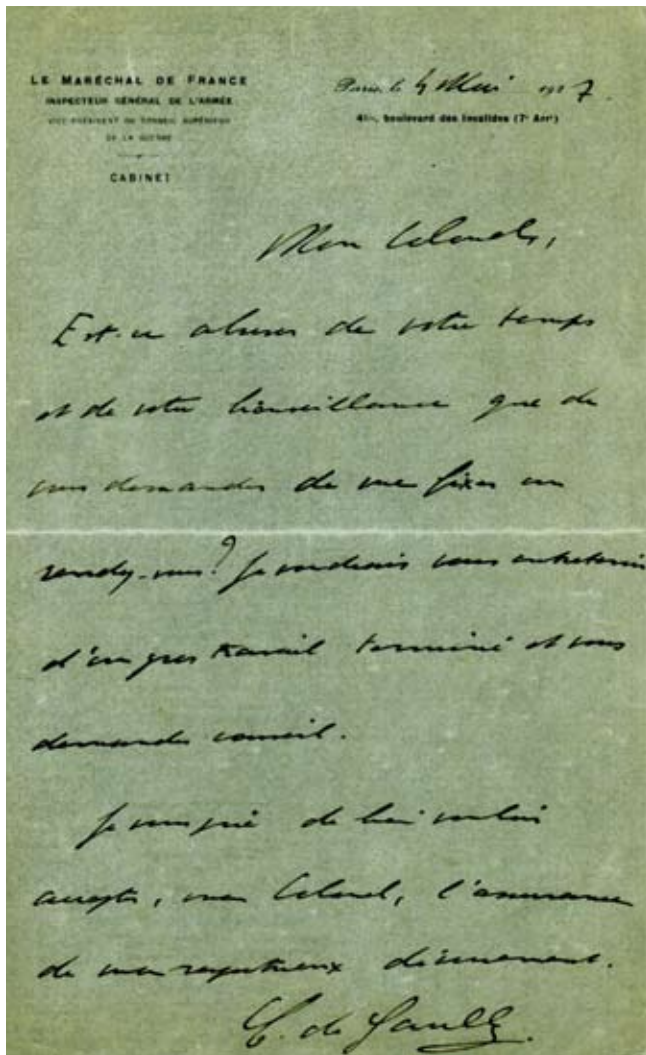 LE MARÉCHAL DE FRANCE
INSPECTEUR GÉNÉRAL DE L'ARMÉE
VICE-PRÉSIDENT DU CONSEIL SUPÉRIEUR
DE LA GUERRE
CABINET
Paris, le 4 Mai 1927.
boulevard des Invalides (7e Arrt)
Mon Colonel,
Est-ce abuser de votre temps
et de votre bienveillance que de
vous demander de me fixer un
rendez-vous? Je voudrais vous entretenir
d'un gros travail terminé et vous
demander conseil.
Je vous prie de bien vouloir
accepter, mon Colonel, l'assurance
de mon respectueux dévouement.
C. de Gaulle.